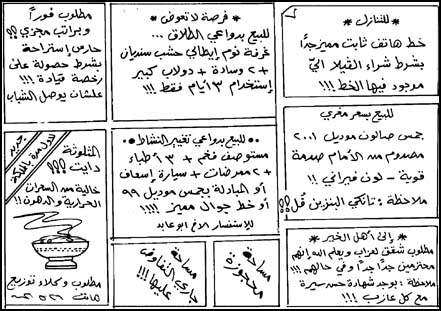 * للتنازل *
خط هاتف ثابت مميز جداً
بشرط شراء الفيلا اليّ
موجود فيها الخط !!!
* فرصة لا تعوض *
للبيع بدواعي الطلاق ...
غرفة نوم إيطالي خشب سنديان
+ ٢ وسادة + دولاب كبير
إستخدام ٣ أيام فقط !!!
مطلوب فوراً
وبراتب مجزي !!!
حارس إستراحة
بشرط حصوله على
رخصة قيادة !!!
علشان يوصل الشباب
للبيع بسعر مغري
جمس صالون موديل ٢٠٠١
مصدوم من الأمام صدمة
قوية - لون فيراني !!
ملاحظة : تانكي البنزين فُل !!!
•• للبيع بدواعي تغيير النشاط ••
مستوصف فخم + ٣ أطباء
+ ٢ ممرضات + سيارة إسعاف
أو المبادلة بجمس موديل ٩٩
أو خط جوال مميز !!!!
للإستفسار الأخ أبو عابد
جديد
لأول مرة بالمملكة
التلوثة
دايت !!!
خالية من السعرات
الحرارية والدهن !!
مطلوب وكلاء توزيع
* إلى أهل الخير *
مطلوب شقق لعزاب ويعلم الله إنهم
محترمين جداً جداً وفي حالهم !!!
ملاحظة : يوجد شهادة حسن سيرة
مع كل عازب !!!
مساحة
محجوزة
مساحة
جاري التفاوض
عليها !!!